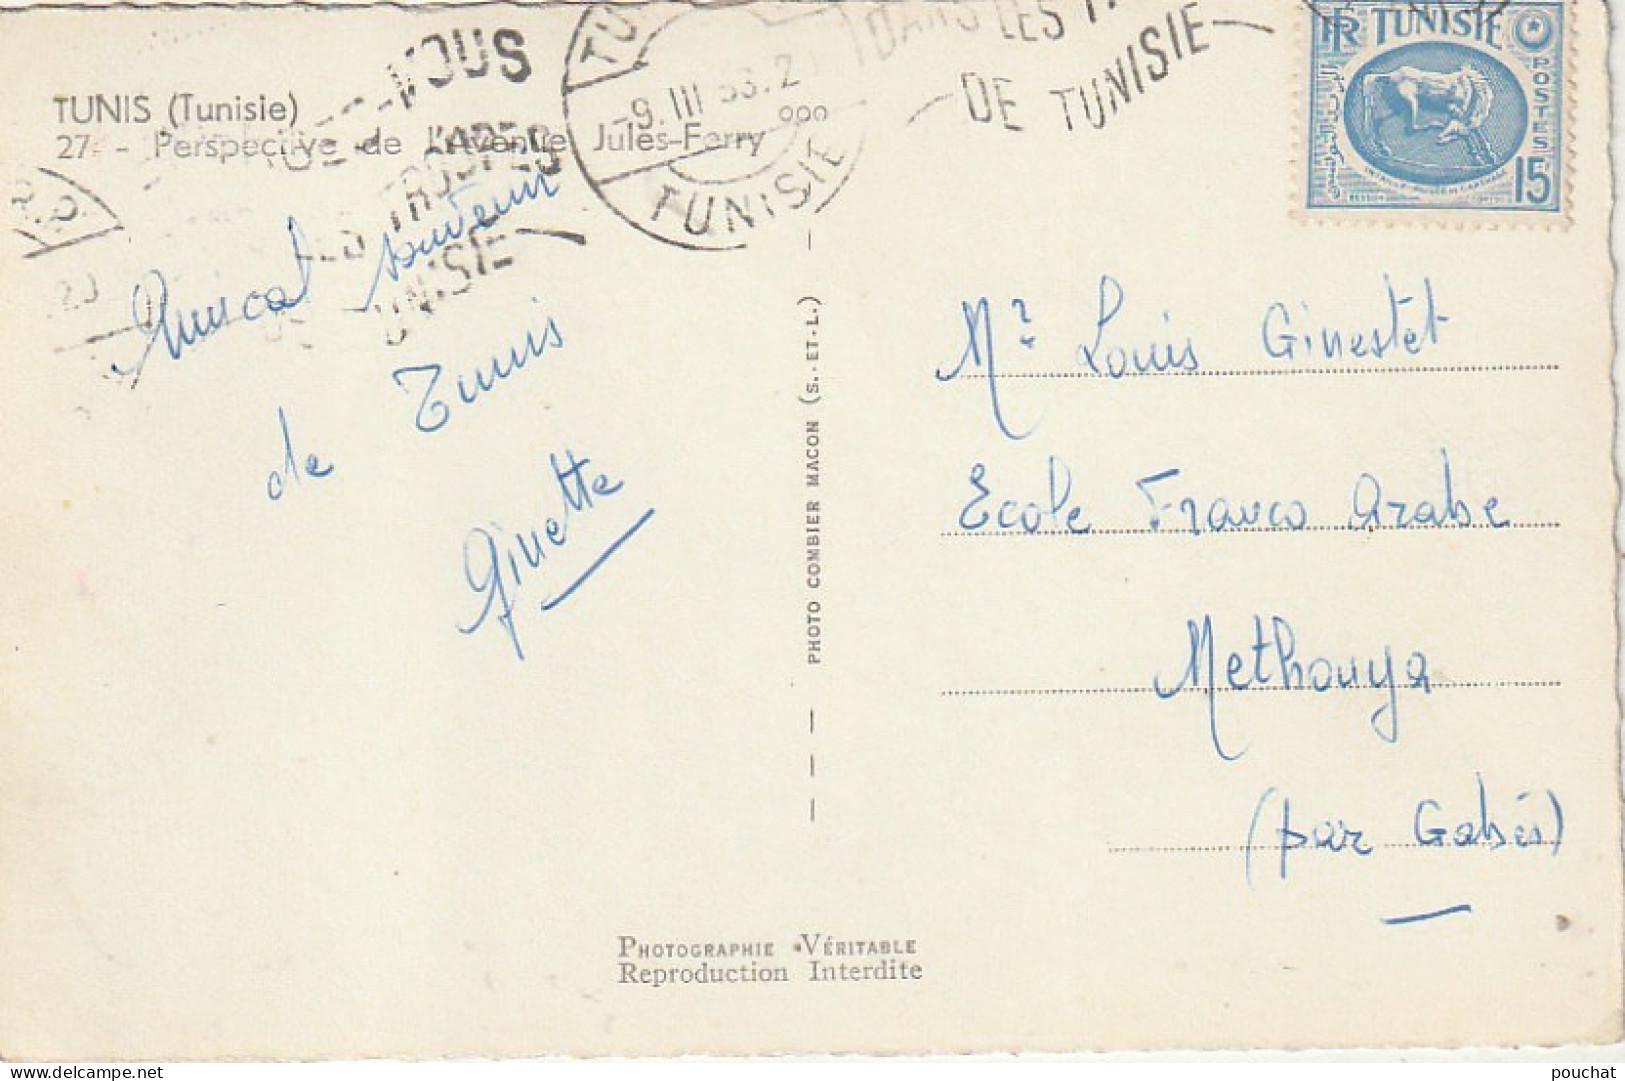 TUNIS (Tunisie)
27 - Perspective de l'Avenue Jules-Ferry
Amical souvenir
de Tunis
Ginette
PHOTO COMBIER MACON (S.-ET-L.)
PHOTOGRAPHIE VÉRITABLE
Reproduction Interdite
VOUS
LES TROUPES
TUNISIE
-9. III
TUNISIE
DANS LES
DE TUNISIE
RF TUNISIE
POSTES
15
Mr Louis Ginestet
Ecole Franco Arabe
Methouya
(par Gabès)
pouchat